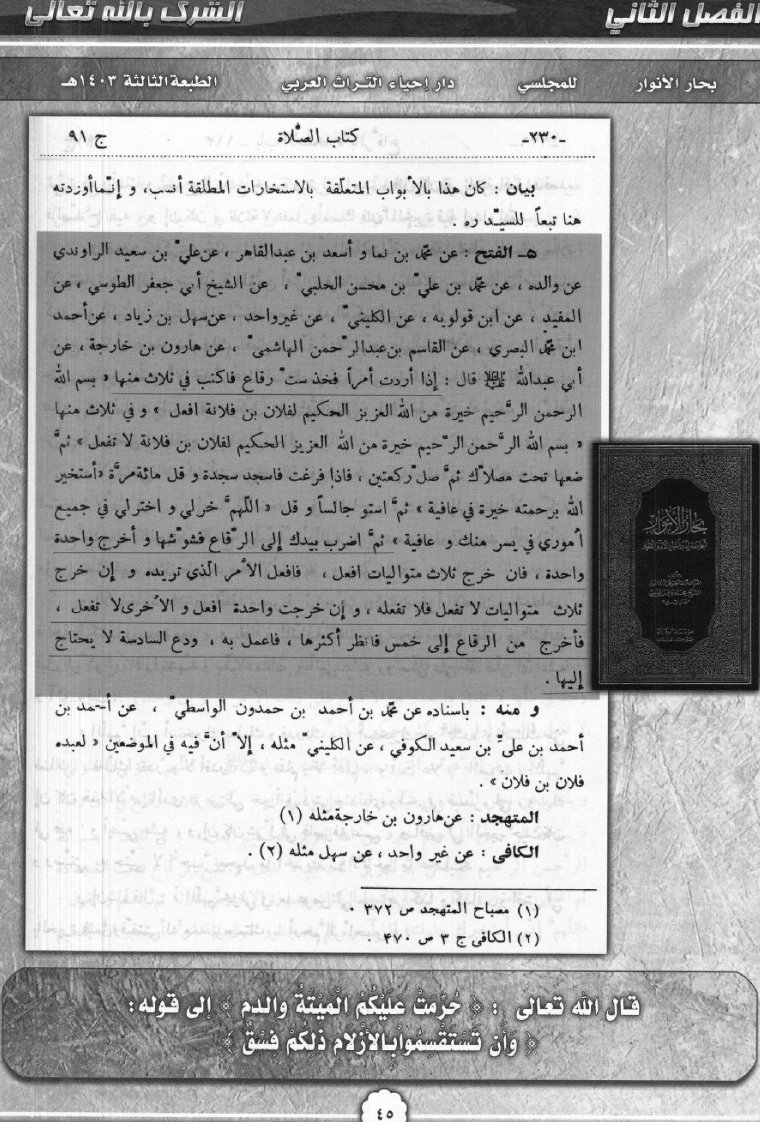 الفصل الثاني الشرك بالله تعالى
بحار الأنوار للمجلسي دار إحياء التراث العربي الطبعة الثالثة ١٤٠٣هـ
ـ٢٣٠ـ كتاب الصلاة ج ٩١
بيان : كان هذا بالأبواب المتعلّقة بالاستخارات المطلقة أنسب، و إنّما أوردته
هنا تبعاً للسيّد ره .
٥ـ الفتح : عن محمّد بن نما و أسعد بن عبدالقاهر ، عن عليّ بن سعيد الراوندي
عن والده ، عن محمّد بن عليّ بن محسن الحلبيّ ، عن الشيخ أبي جعفر الطوسي ، عن
المفيد ، عن ابن قولويه ، عن الكلينيّ ، عن غير واحد ، عن سهل بن زياد ، عن أحمد
ابن محمّد البصري ، عن القاسم بن عبدالرّحمن الهاشمى ، عن هارون بن خارجة ، عن
أبي عبدالله عليه السلام قال : إذا أردت أمراً فخذ ستّ رقاع فاكتب في ثلاث منها « بسم الله
الرحمن الرّحيم خيرة من الله العزيز الحكيم لفلان بن فلانة افعل » و في ثلاث منها
« بسم الله الرّحمن الرّحيم خيرة من الله العزيز الحكيم لفلان بن فلانة لا تفعل » ثمّ
ضعها تحت مصلاّك ثمّ صلّ ركعتين ، فاذا فرغت فاسجد سجدة و قل مائة مرّة « أستخير
الله برحمته خيرة في عافية » ثمّ استو جالساً و قل « اللّهمّ خرلي و اخترلي في جميع
أموري في يسر منك و عافية » ثمّ اضرب بيدك إلى الرّقاع فشوّشها و أخرج واحدة
واحدة ، فان خرج ثلاث متواليات افعل ، فافعل الأمر الذي تريده و إن خرج
ثلاث متواليات لا تفعل فلا تفعله ، و إن خرجت واحدة افعل و الأخرى لا تفعل ،
فأخرج من الرقاع إلى خمس فانظر أكثرها ، فاعمل به ، ودع السادسة لا يحتاج
إليها .
و منه : باسناده عن محمّد بن أحمد بن حمدون الواسطيّ ، عن أحمد بن
أحمد بن عليّ بن سعيد الكوفي ، عن الكلينيّ مثله ، إلاّ أنّ فيه في الموضعين « لعبده
فلان بن فلان » .
المتهجد : عن هارون بن خارجة مثله (١)
الكافى : عن غير واحد ، عن سهل مثله (٢) .
(١) مصباح المتهجد ص ٣٧٢ .
(٢) الكافى ج ٣ ص ٤٧٠ .
بحار الأنوار
قال الله تعالى : ﴿ حُرِّمتْ عَلَيْكُمُ الْمَيْتَةُ والدم ﴾ إلى قوله :
﴿ وَأَن تَسْتَقْسِمُواْ بِالأَزْلام ذَلِكُمْ فِسْقٌ ﴾
٤٥